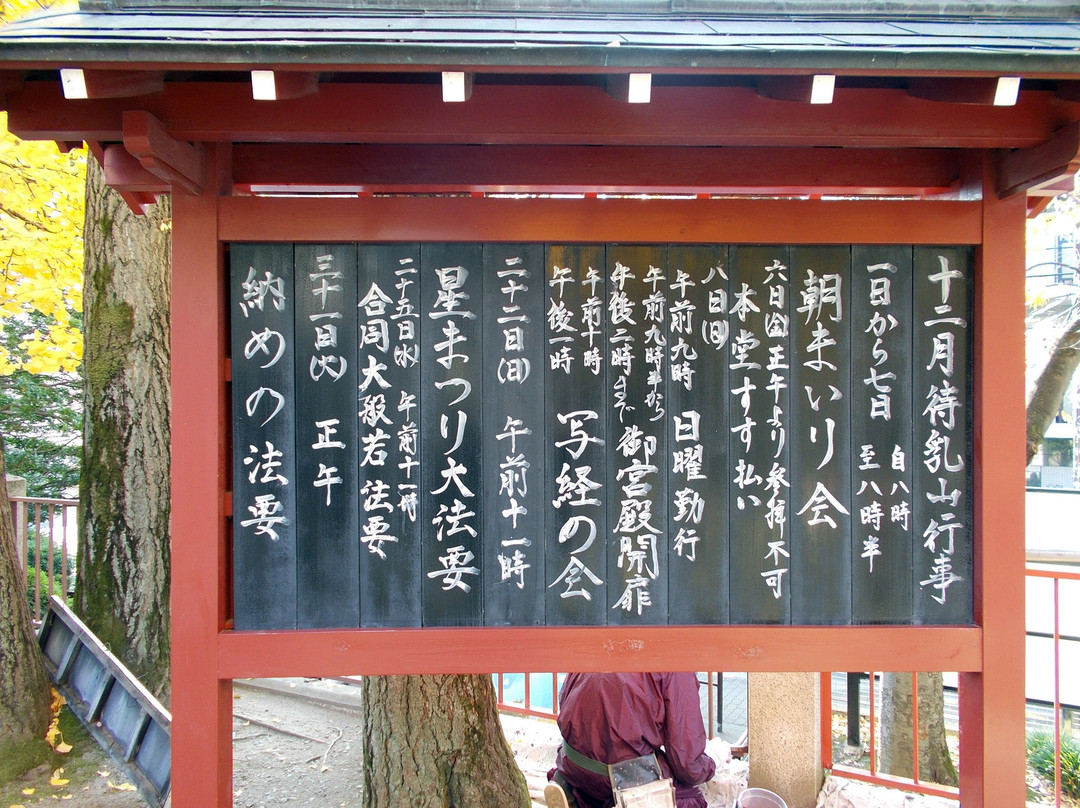 十二月待乳山行事
一日から七日
自八時
至八時半
朝まいり会
六日㈮正午より参拝不可
本堂すす払い
八日㈰
午前九時 日曜勤行
午前九時半から
午後二時まで
御宮殿開扉
午前十時
午後一時
写経の会
二十二日㈰ 午前十一時
星まつり大法要
二十五日㈬ 午前十一時
合同大般若法要
三十一日㈫ 正午
納めの法要